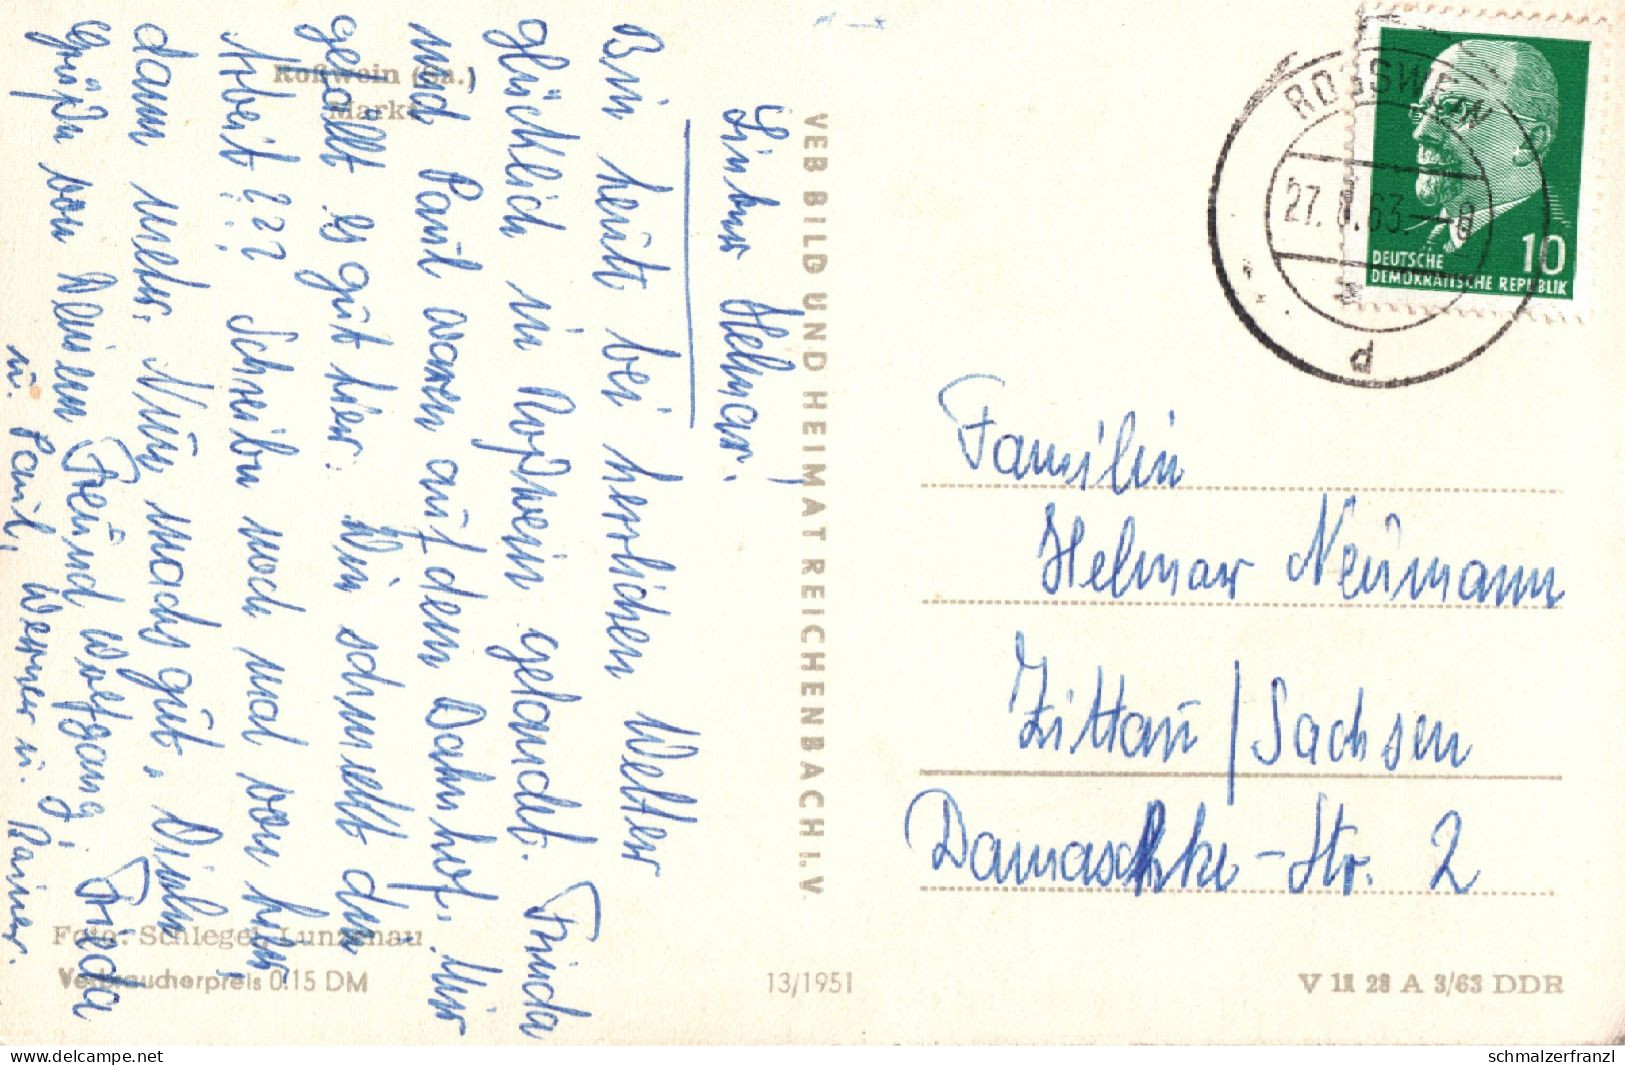 Roßwein (Sa.)
Markt
Lieber Helmar.
Bin heute bei herrlichen Wetter
glücklich in Roßwein gelandet. Frieda
und Paul waren auf dem Bahnhof. Mir
gefällt es gut hier. Wie schmeckt die
Arbeit??? Schreibe noch mal von hier,
dann mehr. Nun machs gut. Viele
Grüße von Deinem Freund Wolfgang, Frieda
u. Paul, Werner u. Rainer.
Foto: Schlegel, Lunzenau
Verbraucherpreis 0.15 DM
VEB BILD UND HEIMAT REICHENBACH I. V.
13/1951
ROSSWEIN
27. 63.
d
10
DEUTSCHE
DEMOKRATISCHE REPUBLIK
Familie
Helmar Neumann
Zittau / Sachsen
Damaschke-Str. 2
V 11 28 A 3/63 DDR
schmalzerfranzl
www.delcampe.net